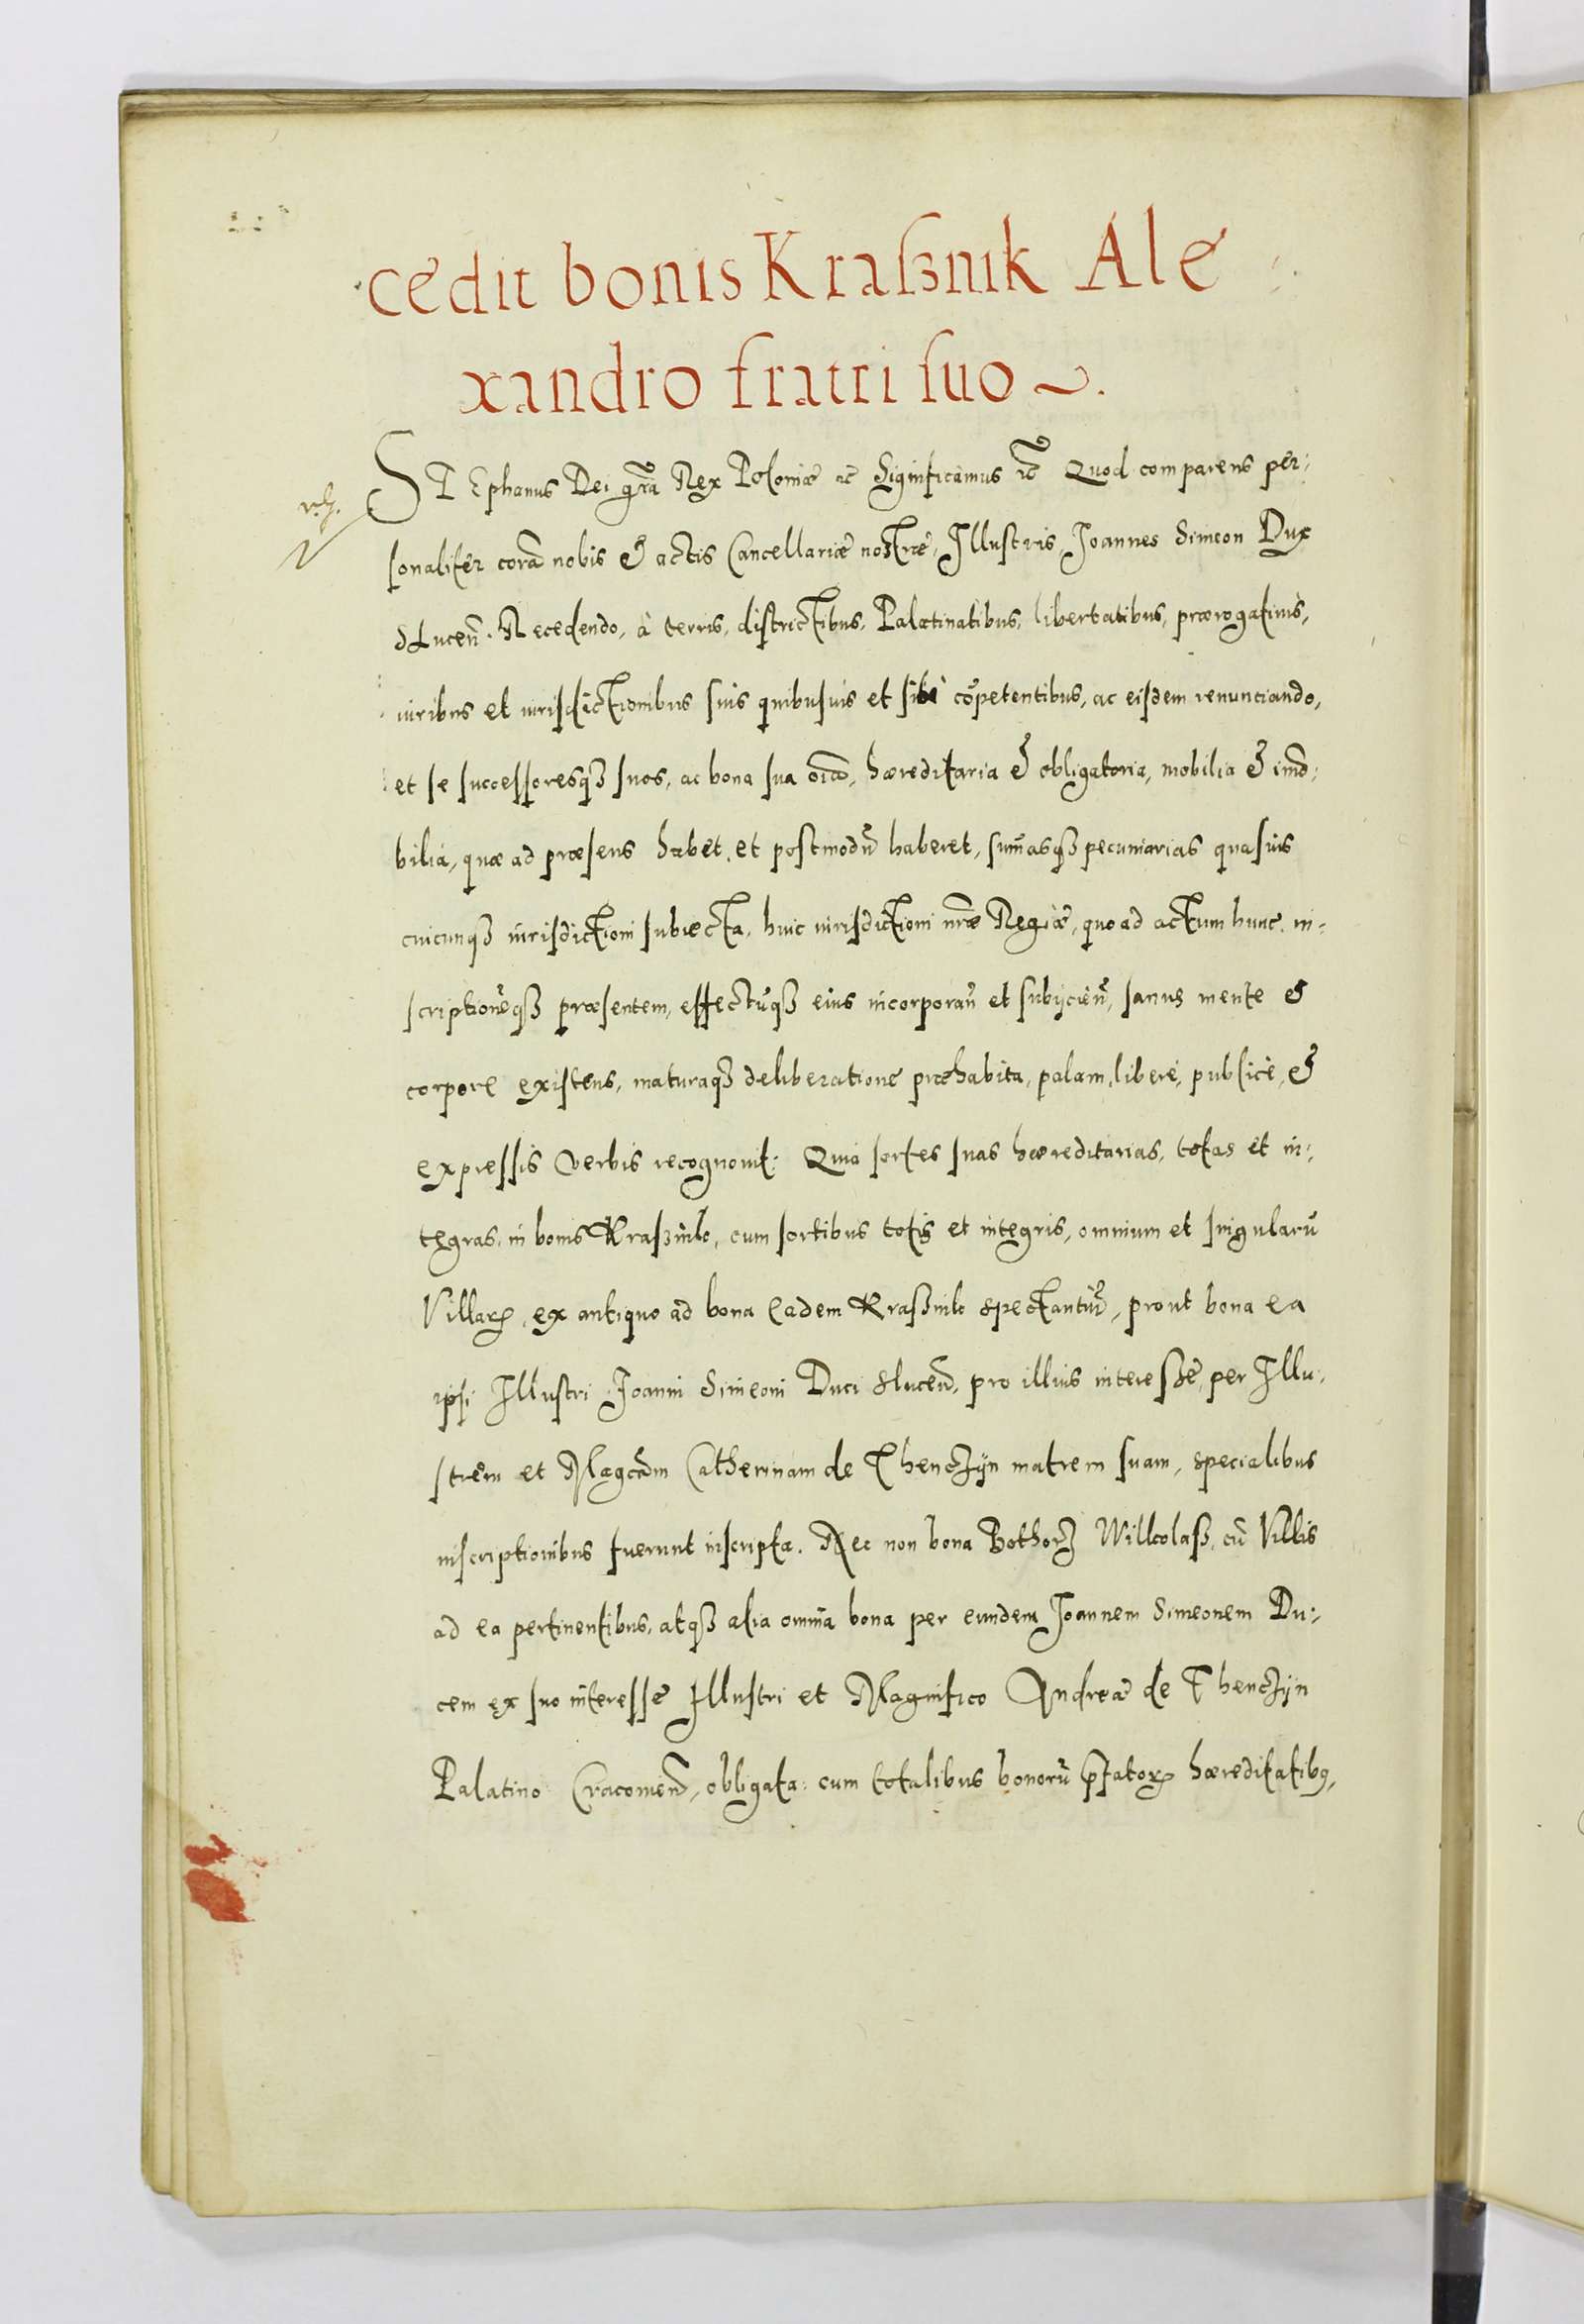 cedit bonis Kraßnik Ale
xandro fratri suo
STEphanus Dei grã Rex Poloniæ &c Significamus &c Quod comparens per:
sonaliter corã nobis & actis Cancellariæ nostræ, Illustris, Joannes Simeon Dux
Slucen̄. Recedendo, à terris, districtibus, Palatinatibus, libertatibus, prærogatiuis,
iuribus et iurisdictionibus suis quibusuis et sibi cõpetentibus, ac eisdem renunciando,
et se successoresqꝫ suos, ac bona sua oĩa, hæreditaria & obligatoria, mobilia & im̃o:
bilia, quæ ad præsens habet, et postmodũ haberet, sum̃asqꝫ pecuniarias quasuis
cuicunqꝫ iurisdictioni subiecta, huic iurisdictioni nr̃æ Regiæ, quo ad actum hunc, in:
scriptionẽqꝫ præsentem, effectũqꝫ eius incorporan̄ et subijcien̄, sanus mente &
corpore existens, maturaqꝫ deliberatione præhabita, palam, liberè, publicè, &
expressis verbis recognouit: Quia sortes suas hæreditarias, totas et in:
tegras, in bonis Kraßnik, cum sortibus totis et integris, omnium et singularũ
Villarꝝ, ex antiquo ad bona eadem Kraßnik spectantiũ, prout bona ea
ipsi Illustri Joanni Simeoni Duci Slucen̄, pro illius interesse, per Illu:
strem et Magcãm Catherinam de Thenczijn matrem suam, specialibus
inscriptionibus fuerunt inscripta. Nec non bona Bothorz Willcolaß, cũ Villis
ad ea pertinentibus, atqꝫ alia omnia bona per eundem Joannem Simeonem Du:
cem ex suo interesse Illustri et Magnifico Andreæ de Thenczijn
Palatino Cracouien̄, obligata: cum totalibus bonorũ p̃fatorꝝ hæreditatibꝯ,